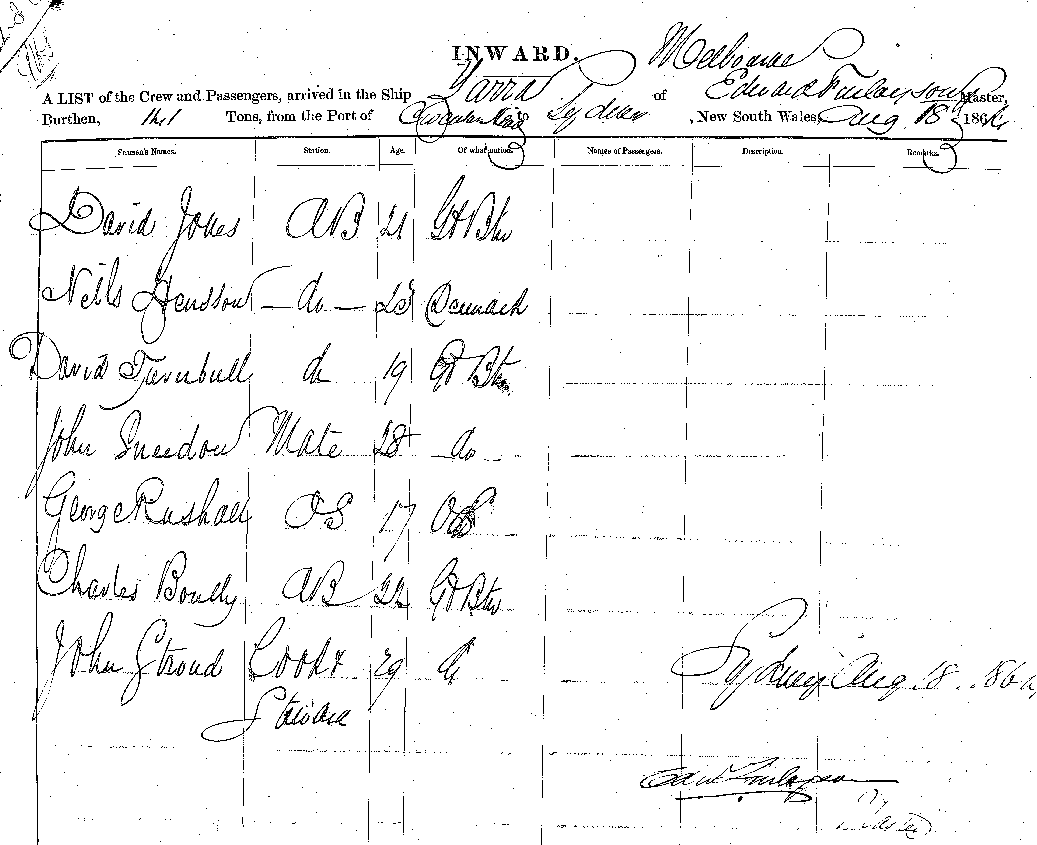 INWARD.
A LIST of the Crew and Passengers, arrived in the Ship Yarra of Melbourne Edward Finlayson Master,
Burthen, 121 Tons, from the Port of to Sydney , New South Wales, Aug 18 186
Seamen's Names. Station. Age. Of what nation. Names of Passengers. Description. Remarks.
David Jones AB 21 Gt Btn
Neils Hendson - do - 25 Denmark
David Turnbull do 19 Gt Btn
John Sneedon Mate 28 do
George Rushall OS 17
Charles AB 22 Gt Btn
John Stroud Cook & 29 do
Steward
Sydney Aug 18 186
Edwd Finlayson
Master